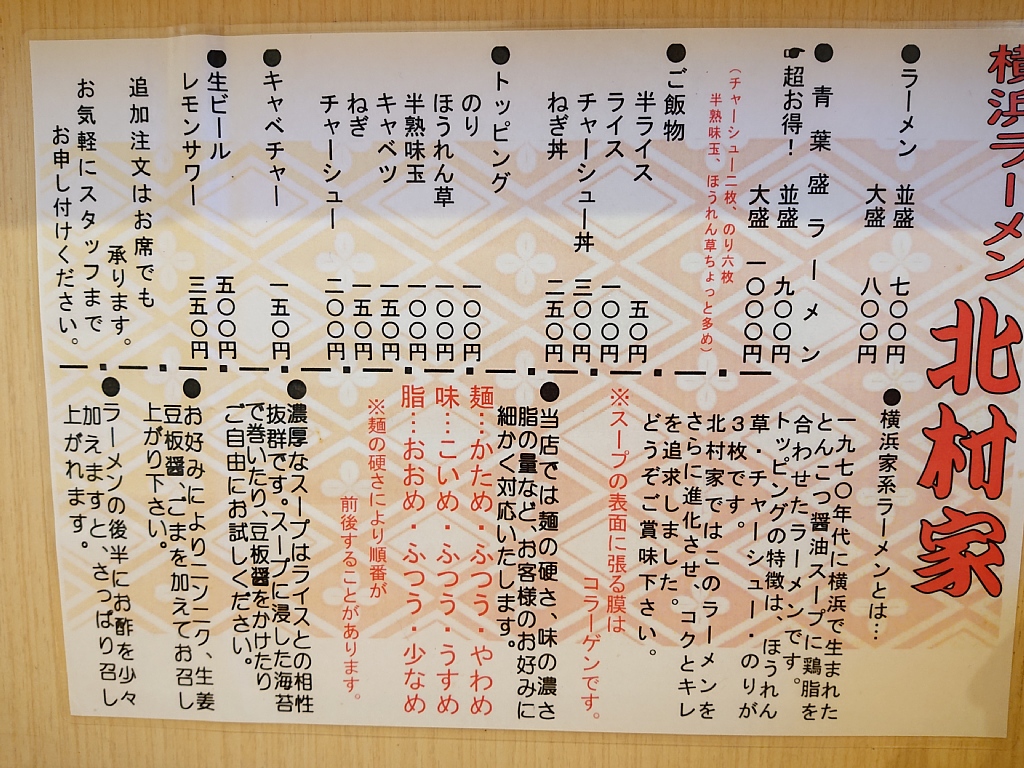 横浜ラーメン 北村家
●ラーメン
並盛 七〇〇円
大盛 八〇〇円
●青葉盛ラーメン
☛超お得! 並盛 九〇〇円
大盛 一〇〇〇円
(チャーシュー二枚、のり六枚
半熟味玉、ほうれん草ちょっと多め)
●ご飯物
半ライス 五〇円
ライス 一〇〇円
チャーシュー丼 三〇〇円
ねぎ丼 二五〇円
●トッピング
のり 一〇〇円
ほうれん草 一〇〇円
半熟味玉 一〇〇円
キャベツ 一五〇円
ねぎ 一五〇円
チャーシュー 二〇〇円
●キャベチャー 一五〇円
●生ビール 五〇〇円
レモンサワー 三五〇円
追加注文はお席でも
承ります。
お気軽にスタッフまで
お申し付けください。
●横浜家系ラーメンとは…
一九七〇年代に横浜で生まれた
とんこつ醤油スープに鶏脂を
合わせたラーメンです。
トッピングの特徴は、ほうれん
草・チャーシュー・のりが
3枚です。
北村家ではこのラーメンを
さらに進化させ、コクとキレ
を追求しました。
どうぞご賞味下さい。
※スープの表面に張る膜は
コラーゲンです。
●当店では麺の硬さ、味の濃さ
脂の量など、お客様のお好みに
細かく対応いたします。
麺…かため・ふつう・やわめ
味…こいめ・ふつう・うすめ
脂…おおめ・ふつう・少なめ
※麺の硬さにより順番が
前後することがあります。
●濃厚なスープはライスとの相性
抜群です。スープに浸した海苔
で巻いたり、豆板醤をかけたり
ご自由にお試しください。
●お好みによりニンニク、生姜
豆板醤、ごまを加えてお召し
上がり下さい。
●ラーメンの後半にお酢を少々
加えますと、さっぱり召し
上がれます。